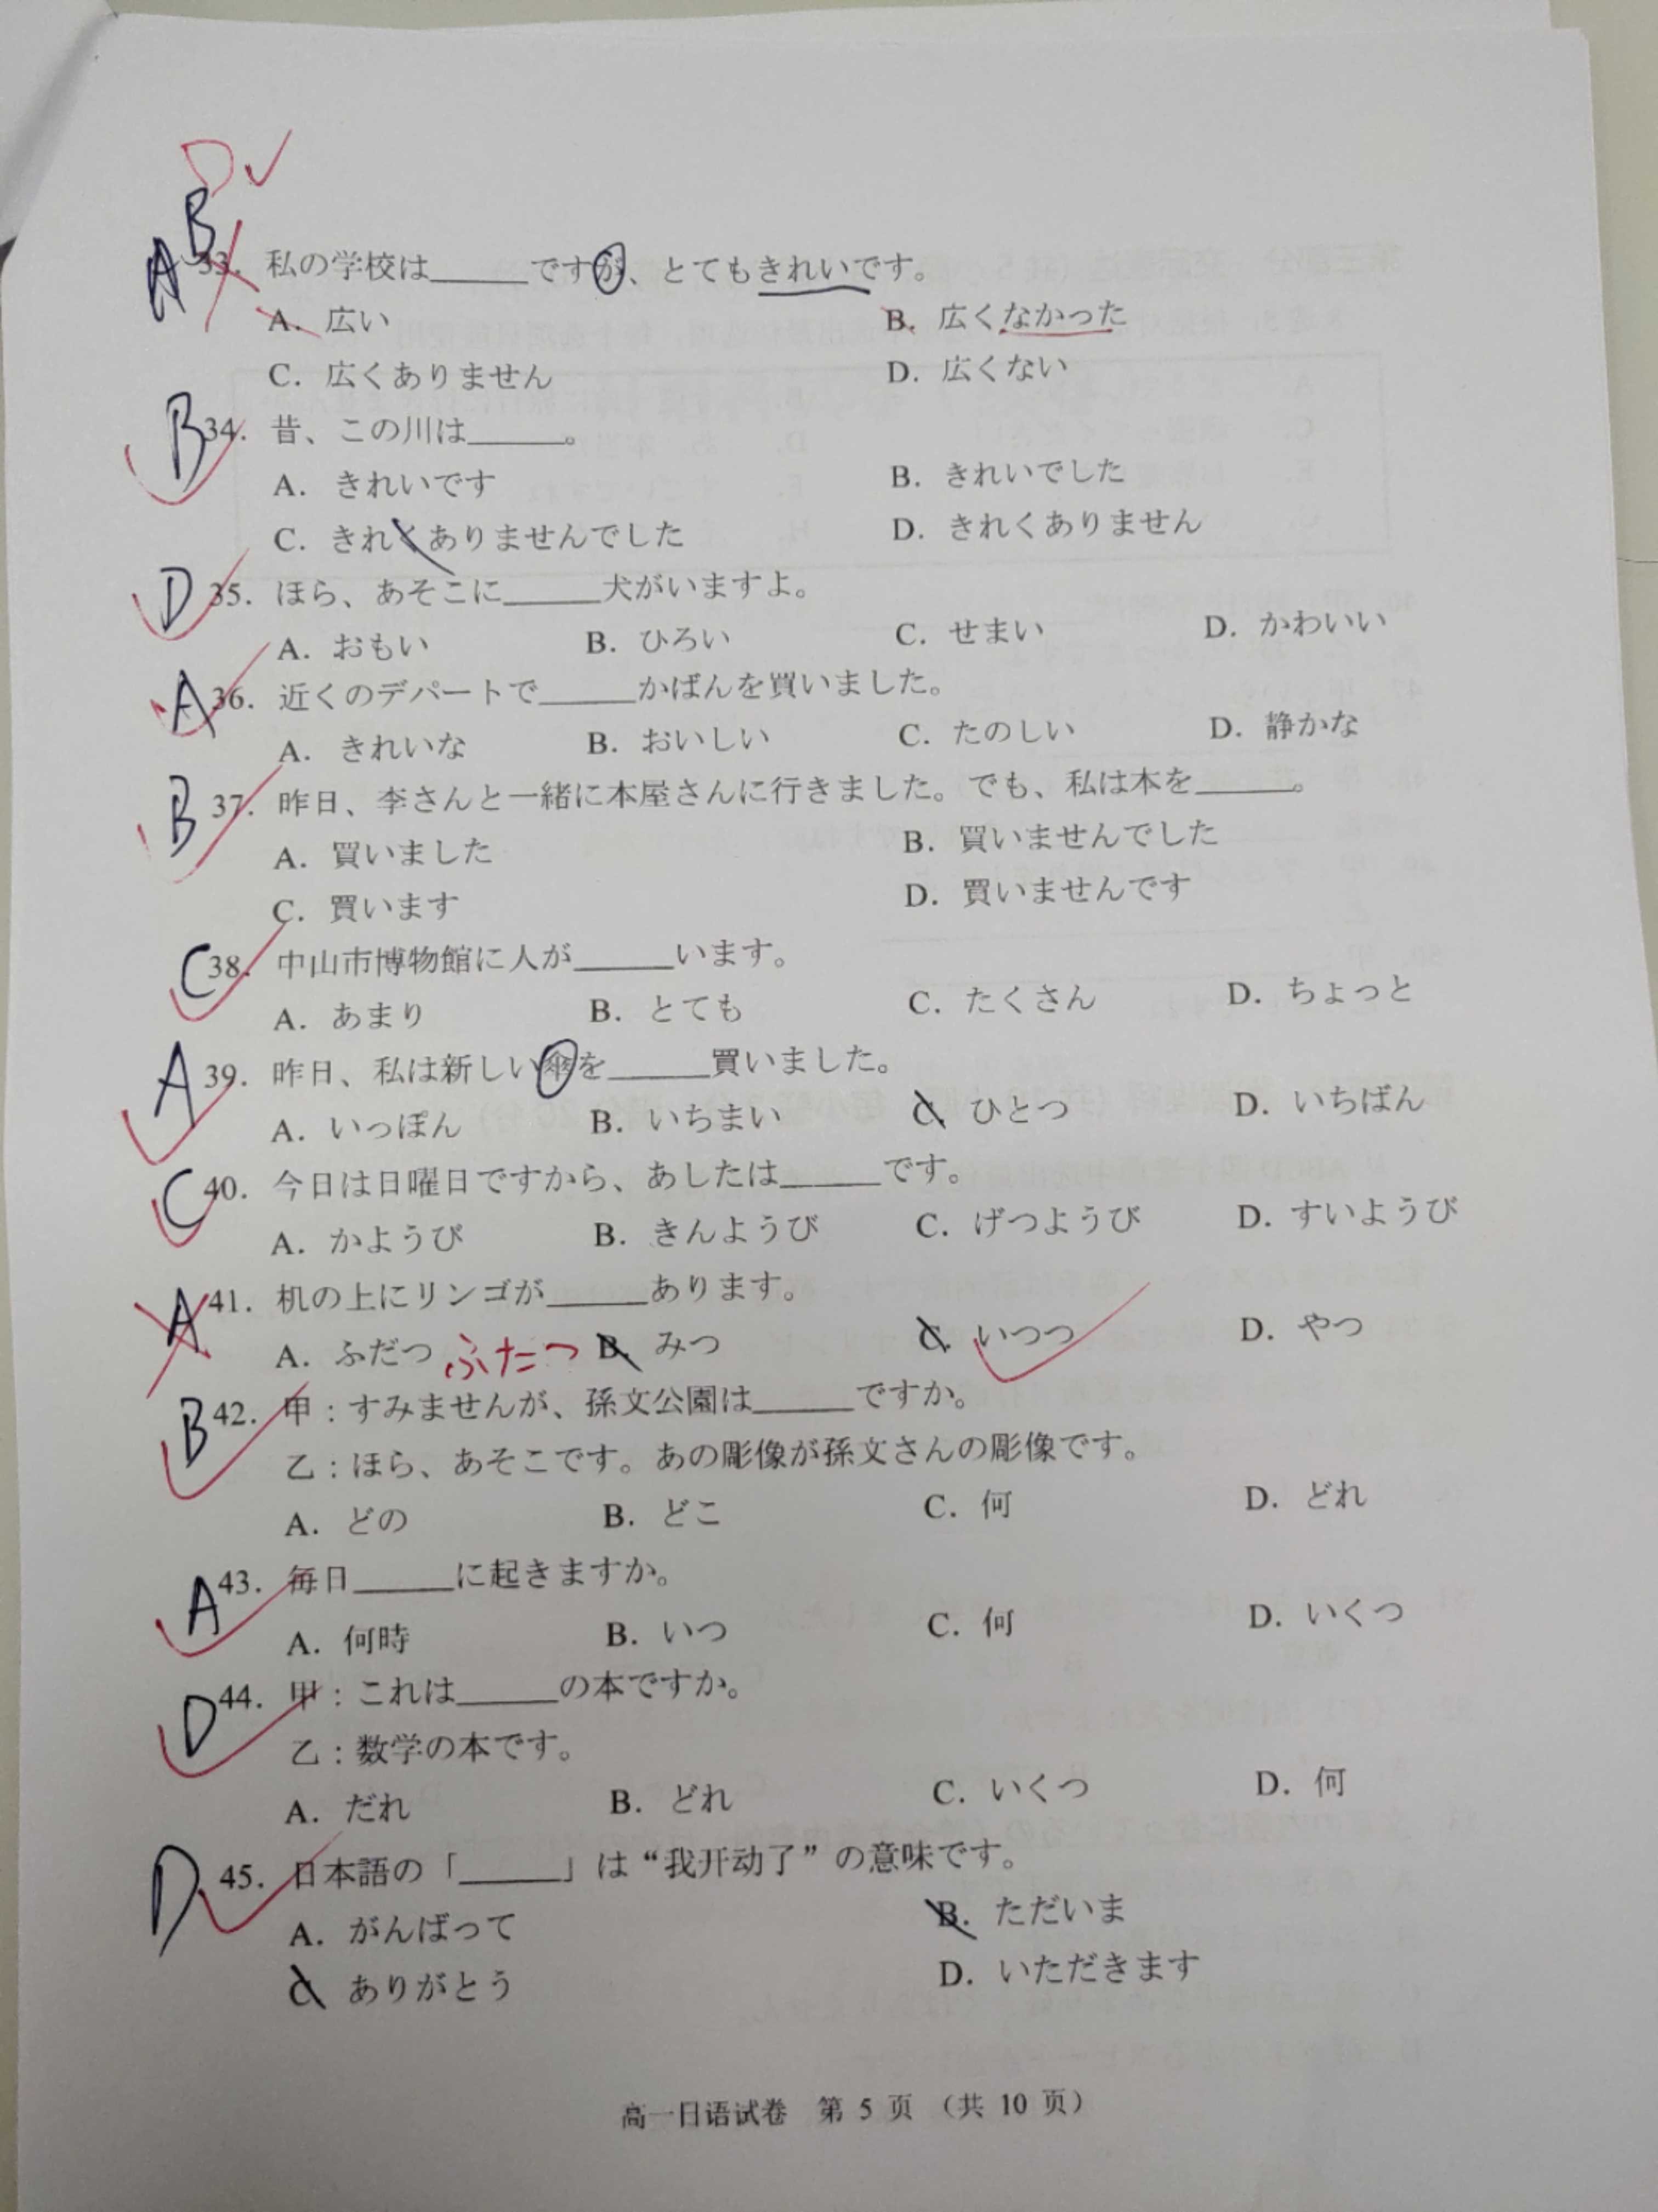 D
B
A 33. 私の学校は______ですが、とてもきれいです。
A. 広い B. 広くなかった
C. 広くありません D. 広くない
B 34. 昔、この川は______。
A. きれいです B. きれいでした
C. きれくありませんでした D. きれくありません
D 35. ほら、あそこに______犬がいますよ。
A. おもい B. ひろい C. せまい D. かわいい
A 36. 近くのデパートで______かばんを買いました。
A. きれいな B. おいしい C. たのしい D. 静かな
B 37. 昨日、李さんと一緒に本屋さんに行きました。でも、私は本を______。
A. 買いました B. 買いませんでした
C. 買います D. 買いませんです
C 38. 中山市博物館に人が______います。
A. あまり B. とても C. たくさん D. ちょっと
A 39. 昨日、私は新しい傘を______買いました。
A. いっぽん B. いちまい C. ひとつ D. いちばん
C 40. 今日は日曜日ですから、あしたは______です。
A. かようび B. きんようび C. げつようび D. すいようび
A 41. 机の上にリンゴが______あります。
A. ふだつ ふたつ B. みつ C. いつつ D. やつ
B 42. 甲：すみませんが、孫文公園は______ですか。
乙：ほら、あそこです。あの彫像が孫文さんの彫像です。
A. どの B. どこ C. 何 D. どれ
A 43. 毎日______に起きますか。
A. 何時 B. いつ C. 何 D. いくつ
D 44. 甲：これは______の本ですか。
乙：数学の本です。
A. だれ B. どれ C. いくつ D. 何
D 45. 日本語の「______」は“我开动了”の意味です。
A. がんばって B. ただいま
C ありがとう D. いただきます
高一日语试卷 第 5 页 （共 10 页）